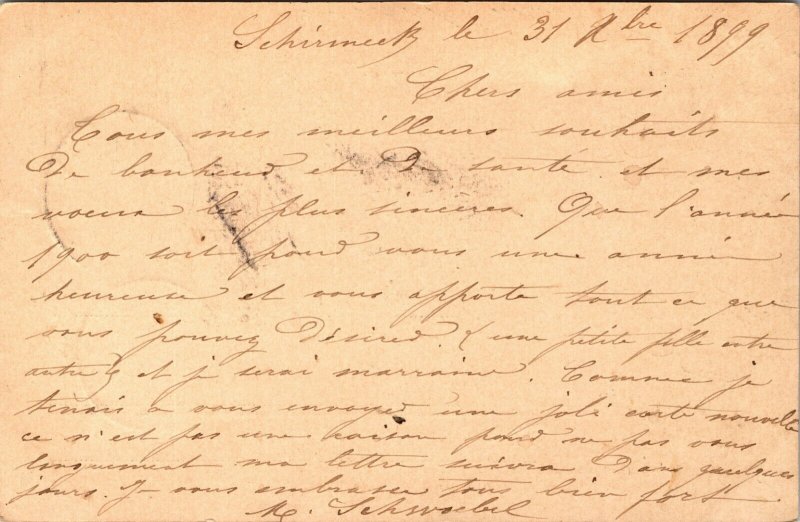 Schirmeck le 31 Xbre 1899
Chers amis
Tous mes meilleurs souhaits
de bonheur et de santé et mes
voeux les plus sincères. Que l'année
1900 soit pour vous une année
heureuse et vous apporte tout ce que
vous pouvez désirer. (une petite fille entre
autre) et je serai marraine. Comme je
tenais a vous envoyer une joli carte nouvelle
ce n'est pas une raison pour ne pas vous
ma lettre suivra dans quelques
jours. Je vous embrasse tous bien fort
M. Schwoebel